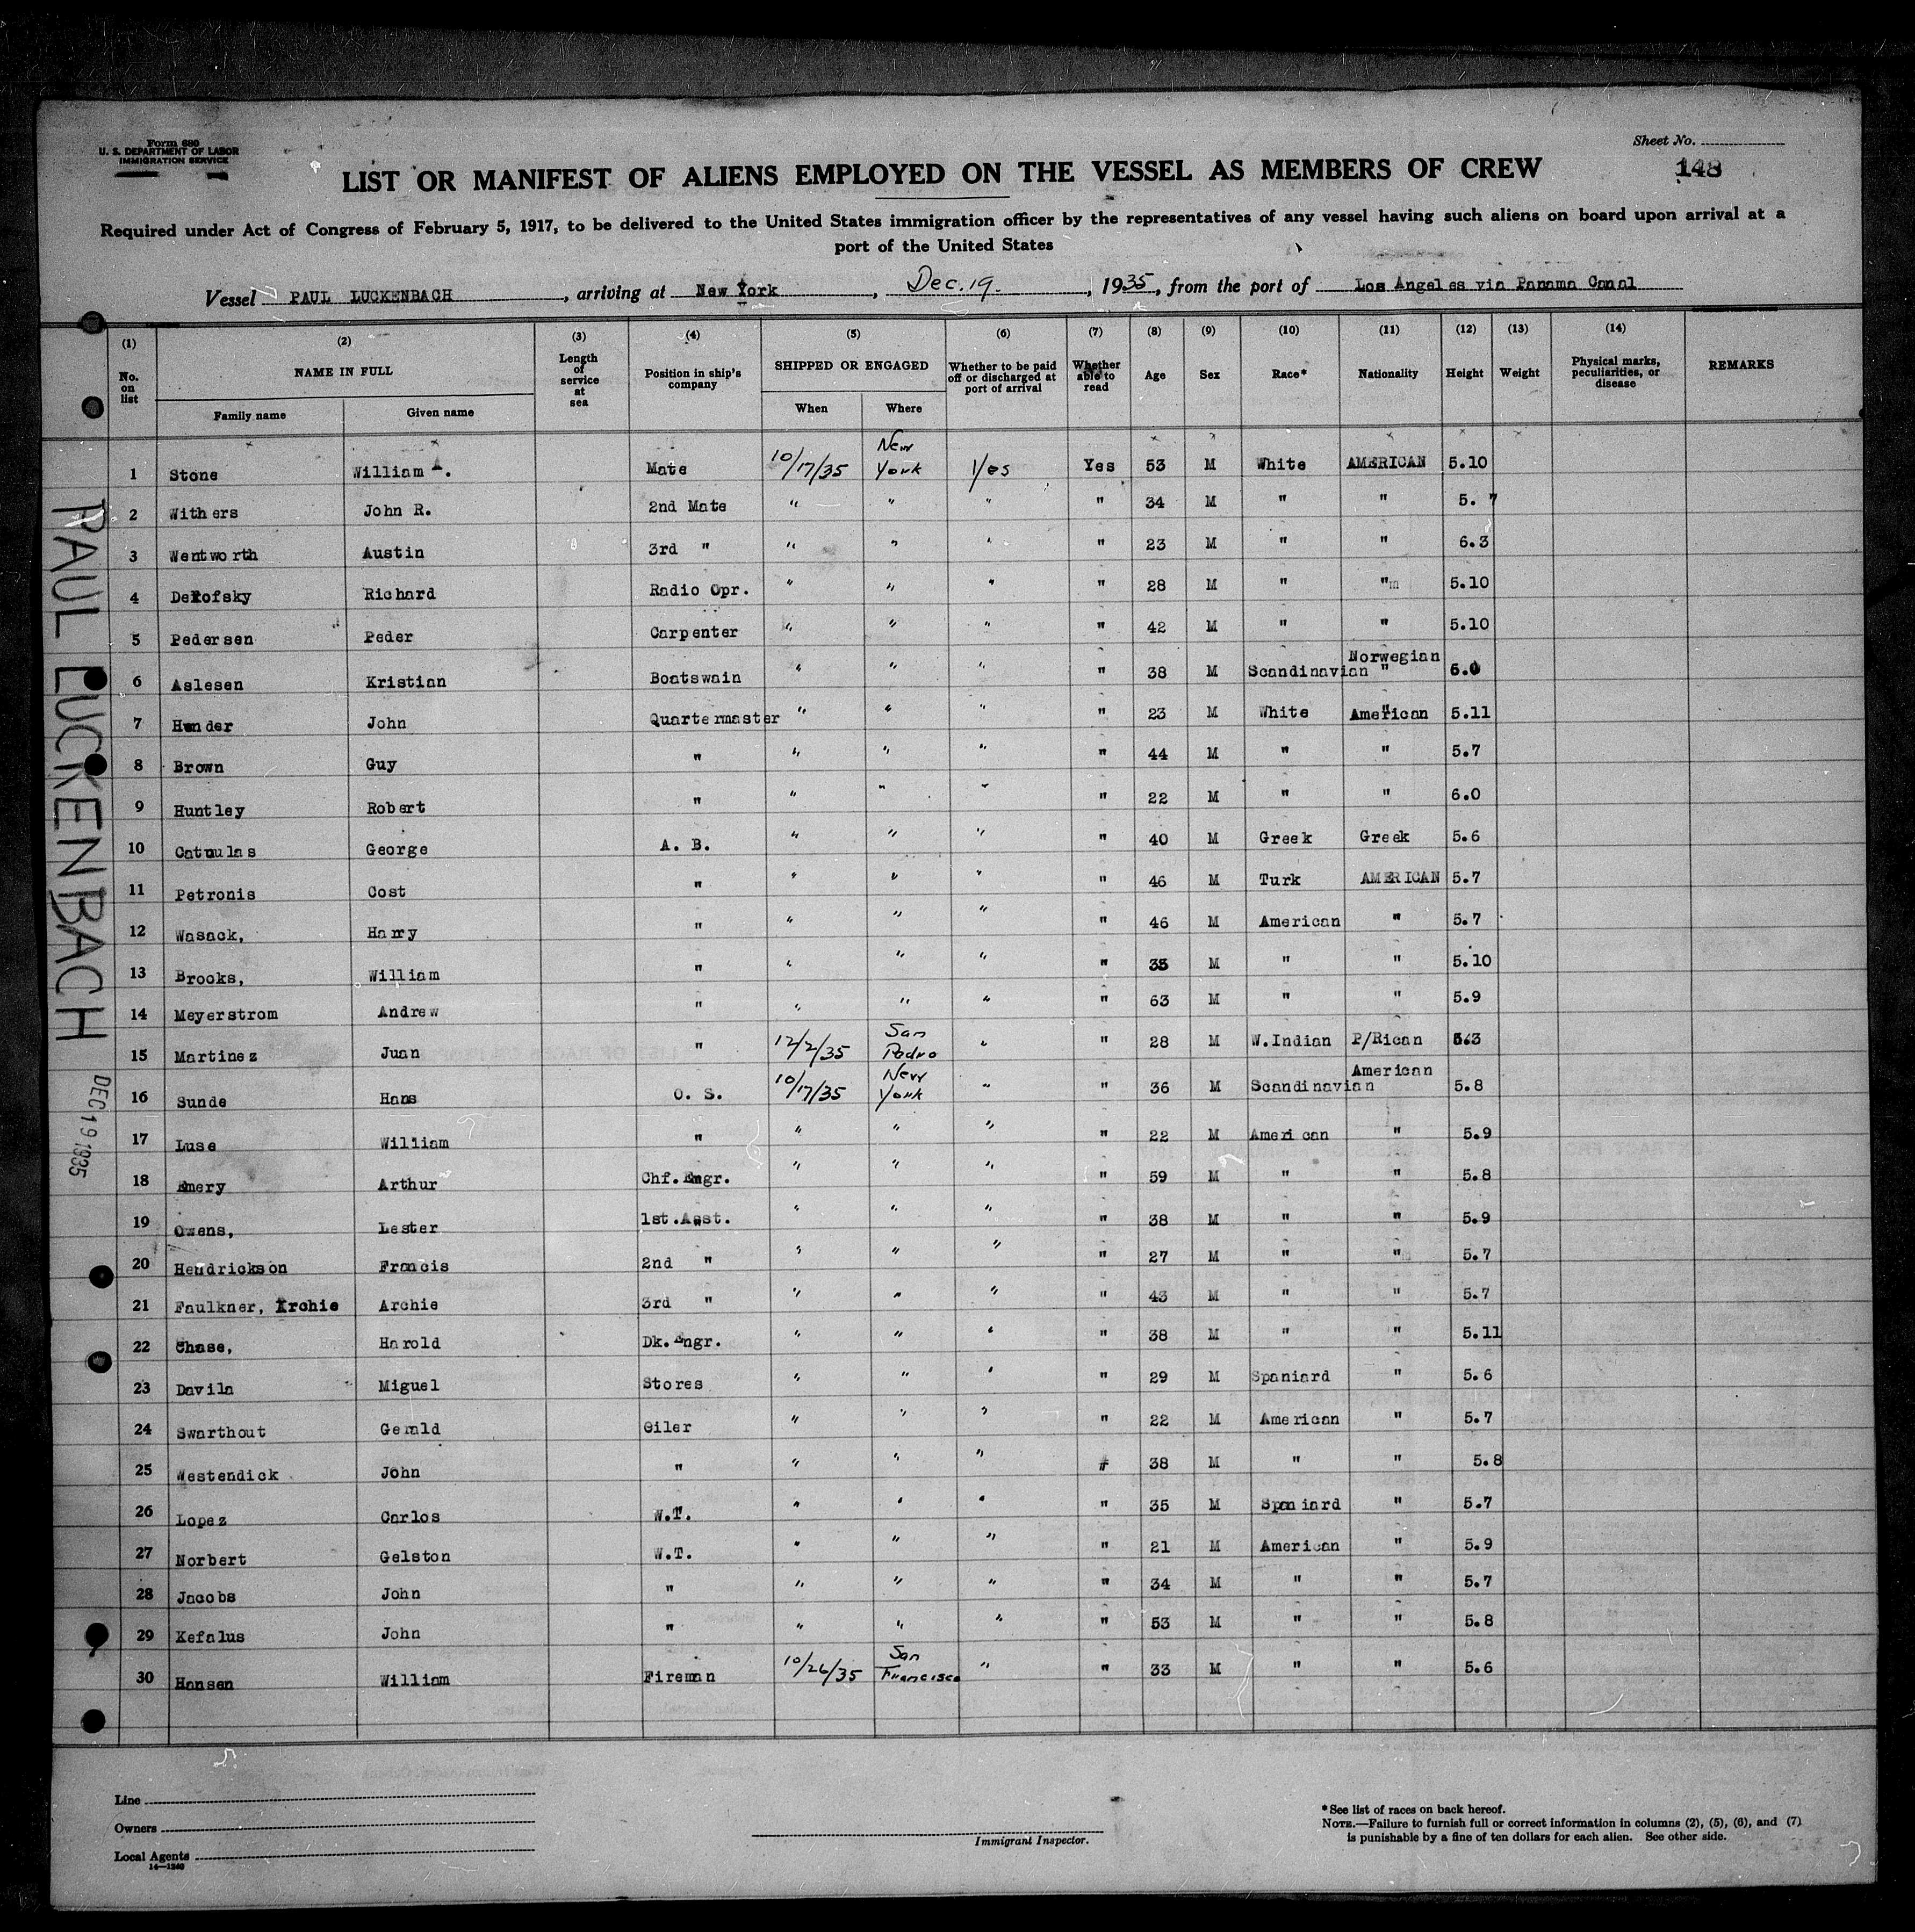 Form 680
U. S. DEPARTMENT OF LABOR
IMMIGRATION SERVICE
Sheet No.
148
LIST OR MANIFEST OF ALIENS EMPLOYED ON THE VESSEL AS MEMBERS OF CREW
Required under Act of Congress of February 5, 1917, to be delivered to the United States immigration officer by the representatives of any vessel having such aliens on board upon arrival at a
port of the United States
Vessel PAUL LUCKENBACH, arriving at New York, Dec. 19, 1935, from the port of Los Angeles via Panama Canal
(1) (2) (3) (4) (5) (6) (7) (8) (9) (10) (11) (12) (13) (14)
No. on list NAME IN FULL Length of service at sea Position in ship's company SHIPPED OR ENGAGED Whether to be paid off or discharged at port of arrival Whether able to read Age Sex Race* Nationality Height Weight Physical marks, peculiarities, or disease REMARKS
Family name Given name When Where
1 Stone William A. Mate 10/17/35 New York Yes Yes 53 M White AMERICAN 5.10
2 Withers John R. 2nd Mate " " " " 34 M " " 5. 7
3 Wentworth Austin 3rd " " " " " 23 M " " 6.3
4 Richard Radio Opr. " " " " 28 M " " 5.10
5 Pedersen Peder Carpenter " " " " 42 M " " 5.10
6 Aslesen Kristian Boatswain " " " " 38 M Scandinavian Norwegian
7 John Quartermaster " " " " 23 M White American 5.11
8 Brown Guy " " " " " 44 M " " 5.7
9 Huntley Robert " " " " " 22 M " " 6.0
10 Catsulas George A. B. " " " " 40 M Greek Greek 5.6
11 Petronis Cost " " " " " 46 M Turk AMERICAN 5.7
12 Wasack, Harry " " " " " 46 M American " 5.7
13 Brooks, William " " " " " 35 M " " 5.10
14 Meyerstrom Andrew " " " " " 63 M " " 5.9
15 Martinez Juan " 12/2/35 San Pedro " " 28 M W.Indian P/Rican
16 Sunde Hans O. S. 10/17/35 New York " " 36 M Scandinavian American 5.8
17 Luse William " " " " " 22 M American " 5.9
18 Emery Arthur Chf. Engr. " " " " 59 M " " 5.8
19 Owens, Lester 1st.Asst. " " " " 38 M " " 5.9
20 Hendrickson Francis 2nd " " " " " 27 M " " 5.7
21 Faulkner, Archie Archie 3rd " " " " " 43 M " " 5.7
22 Chase, Harold Dk. Engr. " " " " 38 M " " 5.11
23 Davila Miguel Stores " " " " 29 M Spaniard " 5.6
24 Swarthout Gerald Oiler " " " " 22 M American " 5.7
25 Westendick John " " " " " 38 M " " 5.8
26 Lopez Carlos W.T. " " " " 35 M Spaniard " 5.7
27 Norbert Gelston W.T. " " " " 21 M American " 5.9
28 Jacobs John " " " " " 34 M " " 5.7
29 Kefalus John " " " " " 53 M " " 5.8
30 Hansen William Fireman 10/26/35 San Francisco " " 33 M " " 5.6
PAUL LUCKENBACH
DEC 19 1935
Line
Owners
Local Agents
14—1240
Immigrant Inspector.
*See list of races on back hereof.
NOTE.—Failure to furnish full or correct information in columns (2), (5), (6), and (7)
is punishable by a fine of ten dollars for each alien. See other side.